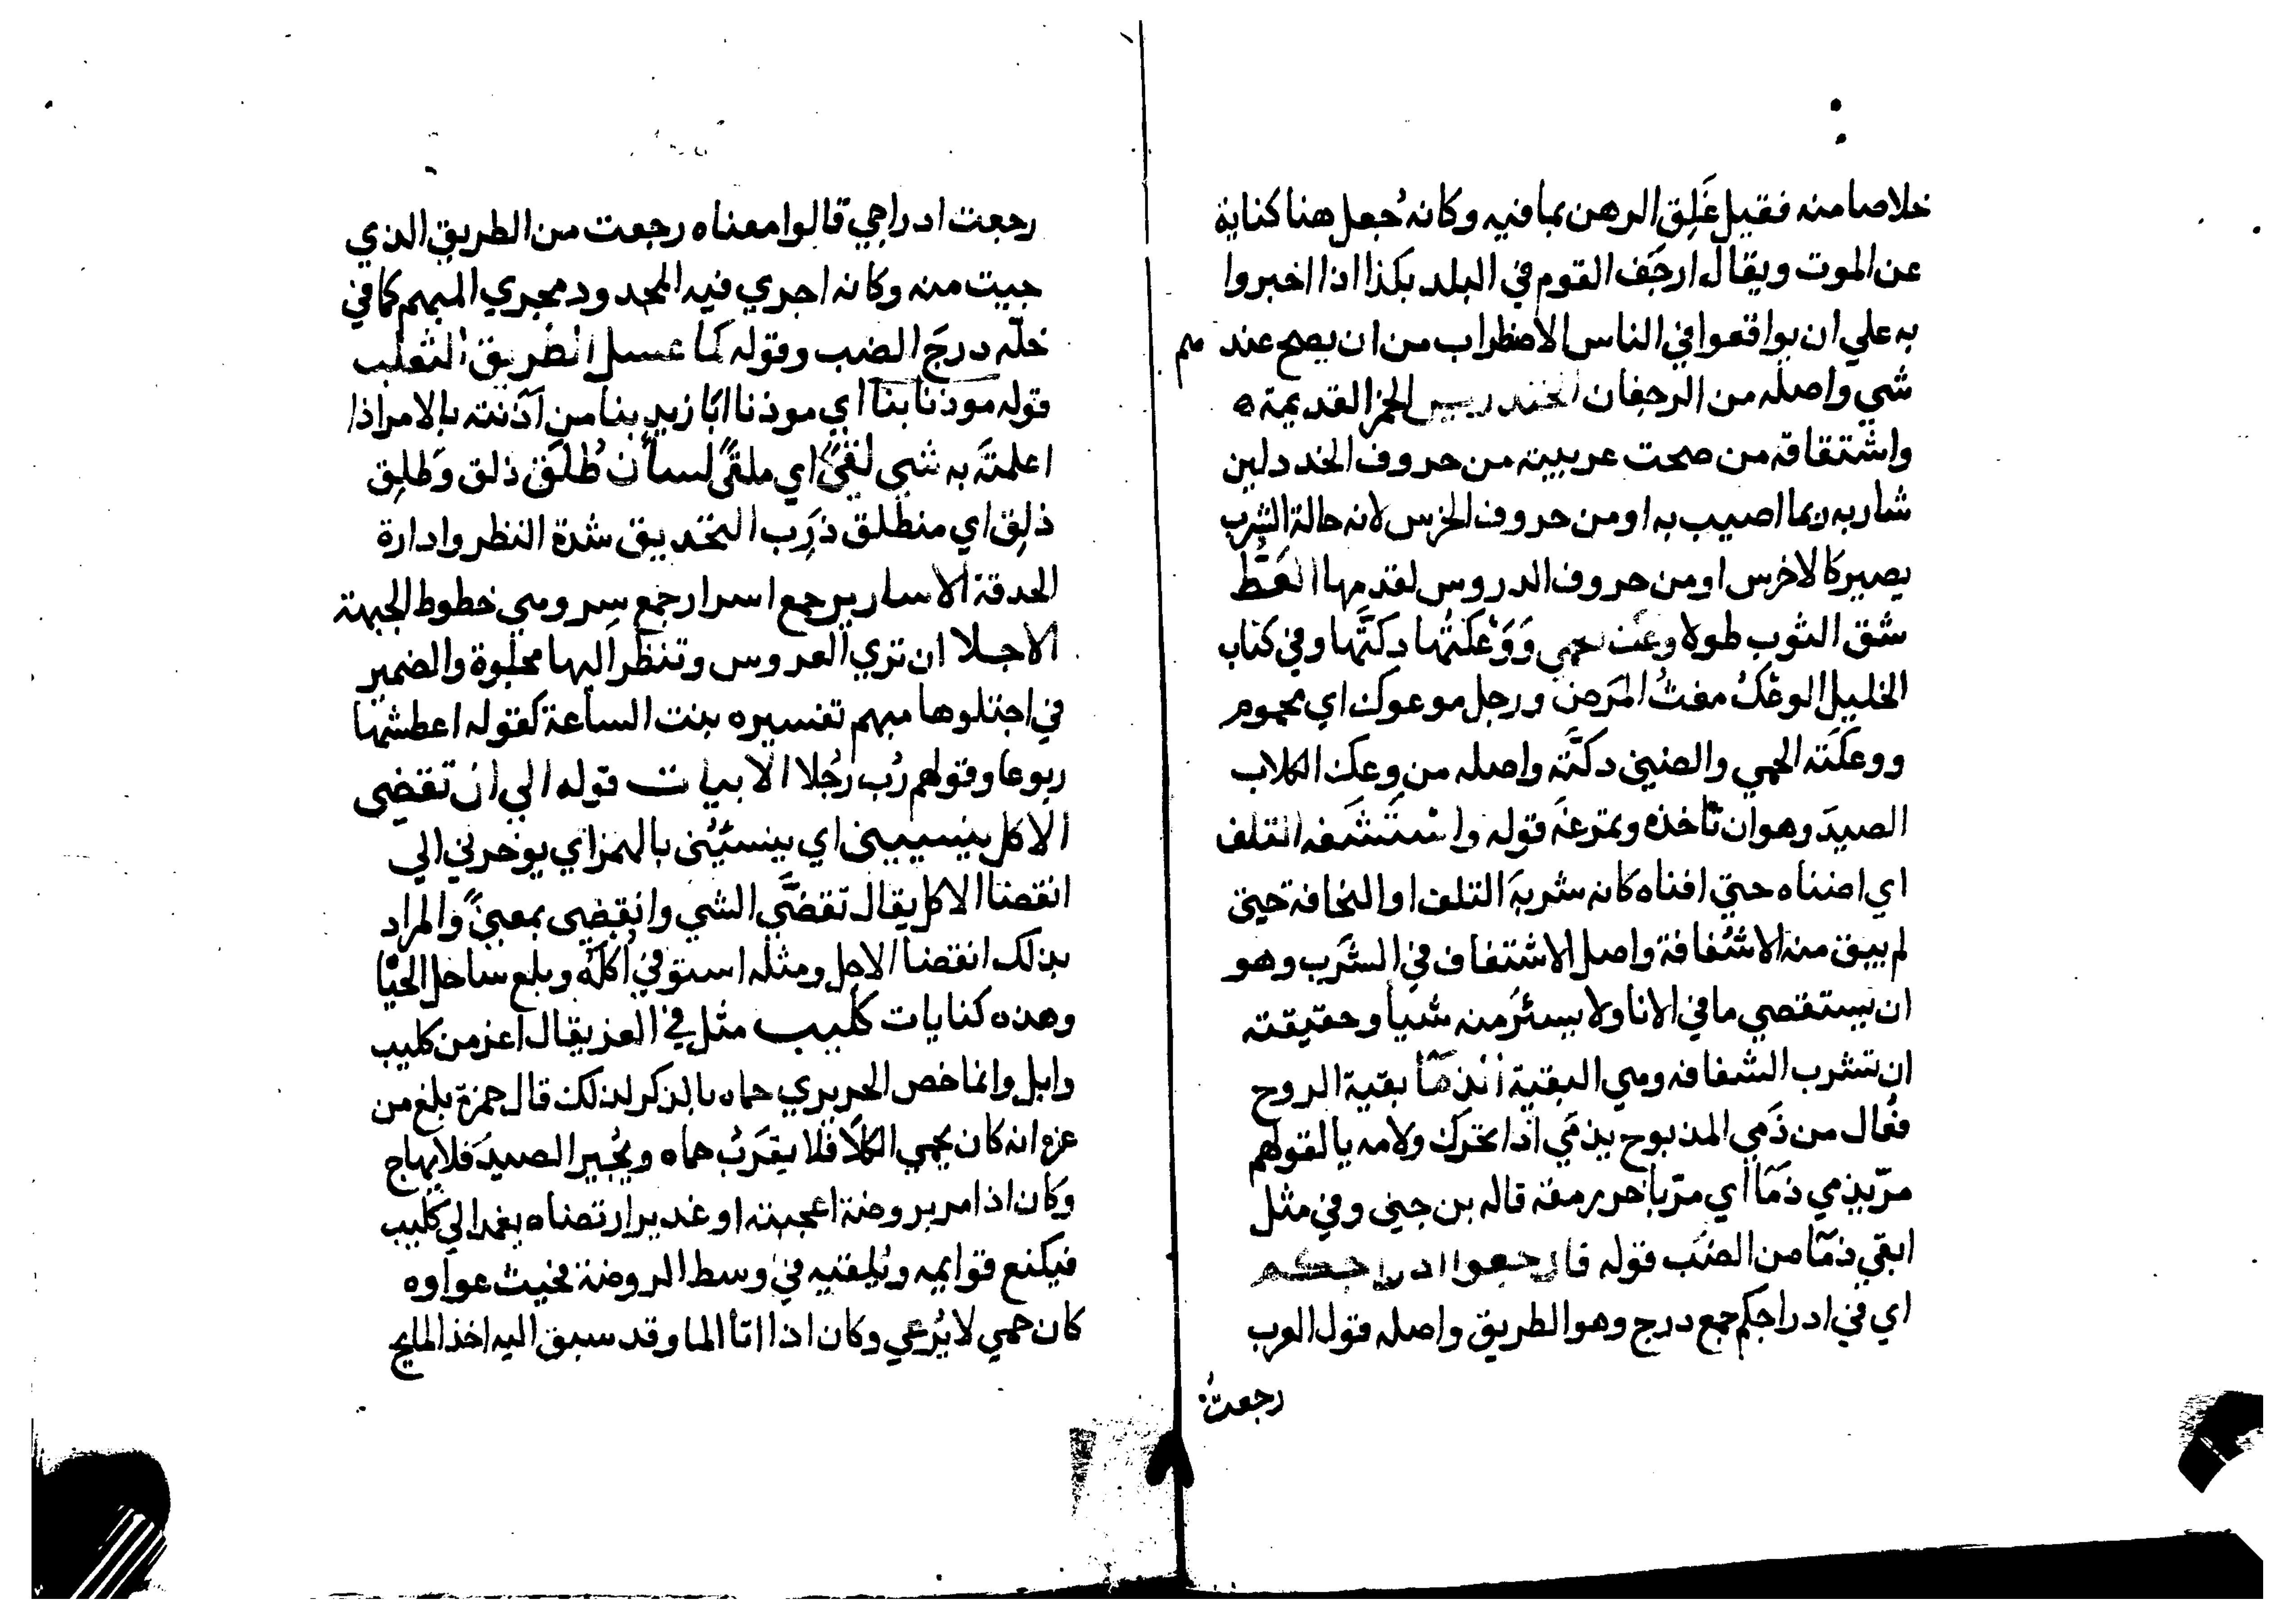 خلاصا منه فقيل غَلِق الرهن بما فيه وكانه جُعل هنا كناية
عن الموت ويقال ارجَف القوم في البلد بكذا اذا اخبروا
به علي ان يواقعوا في الناس الاضطراب من ان يصح عندهم
شي واصله من الرجفان الخندريس الخمر القديمة
واشتقاقه من صحت عربيته من حروف الخدر لين
شاربه بما اصيب به او من حروف الخرس لانه حالة الشرب
يصير كالاخرس او من حروف الدروس لقدمها العَطّ
شق الثوب طولا وعك حمي وَوَعْكَتُها دكّتها وفي كتاب
الخليل الوعْكُ مغث المَرَض ورجل موعوك اي محموم
ووعكَته الحمي والضني دكّته واصله من وعك الكلاب
الصيدَ وهو ان تأخذه وتمرغَه قوله واستشفه التلف
اي اضناه حتي افناه كانه شربه التلف او النحافة حتي
لم يبق منه الا شُفافة واصل الاشتفاف في الشرب وهو
ان يستقصي ما في الانا ولا يسئر منه شيأ وحقيقته
ان تشرب الشفافه وهي البقية الذمَا بقية الروح
فَعال من ذَمي المذبوح يذمَي اذا تحرك ولامه يا لقولهم
مرّ يذمي ذَمَا اي مرّ باخر رمقه قاله بن جني وفي مثل
ابقي ذمَا من الضب قوله فارجعوا ادراجكم
اي في ادراجكم جمع درج وهو الطريق واصله قول العرب
رجعتُ
رجعت ادراجي قالوا معناه رجعت من الطريق الذي
جيت منه وكانه اجري فيه المحدود مجري المبهم كما في
خلّه درجَ الضب وقوله كما عسل الطريق الثعلب
قوله موذنا بنا اي موذنا ابَا زيدٍ بنا من آذنته بالامر اذا
اعلمتَه به شي لَقًي اي ملقًي لسان طُلَق ذلق وَطلِق
ذلِق اي منطلق ذرِب التحديق شدة النظر وادارة
الحدقة الاسارير جمع اسرار جمع سِر وهي خطوط الجبهة
الاجلا ان تري العروس وتنظر اليها مجلوة والضمير
في اجتلوها مبهم تفسيره بنت الساعة كقوله اعطشتها
ربوعا وقولهم رُب رجُلا الابيات قوله الي ان تقضي
الاكل ينسيني اي ينسئُني بالهمز اي يوخرني الي
انقضا الاكل يقال تقضَّي الشي وانقضي بمعنيً والمراد
بذلك انقضا الاجل ومثله استوفي اُكلَه وبلغ ساحل الحيَا
وهذه كنايات كُليب مثل في العز يقال اعز من كليب
وايل وانما خص الحريري حماه بالذكر لذلك قال حمزة بلغ من
عزه انه كان يحمي الكلأ فلا يقرَبُ حماه ويُجير الصيدَ فلا يهاج
وكان اذا مر بروضة اعجبته او غدير ارتضاه يعمد الي كليب
فيكنع قوايمه ويُلقيه في وسط الروضة فحيث عواوه
كان حمي لا يُرعي وكان اذا اتا الما وقد سبق اليه اخذ المايح